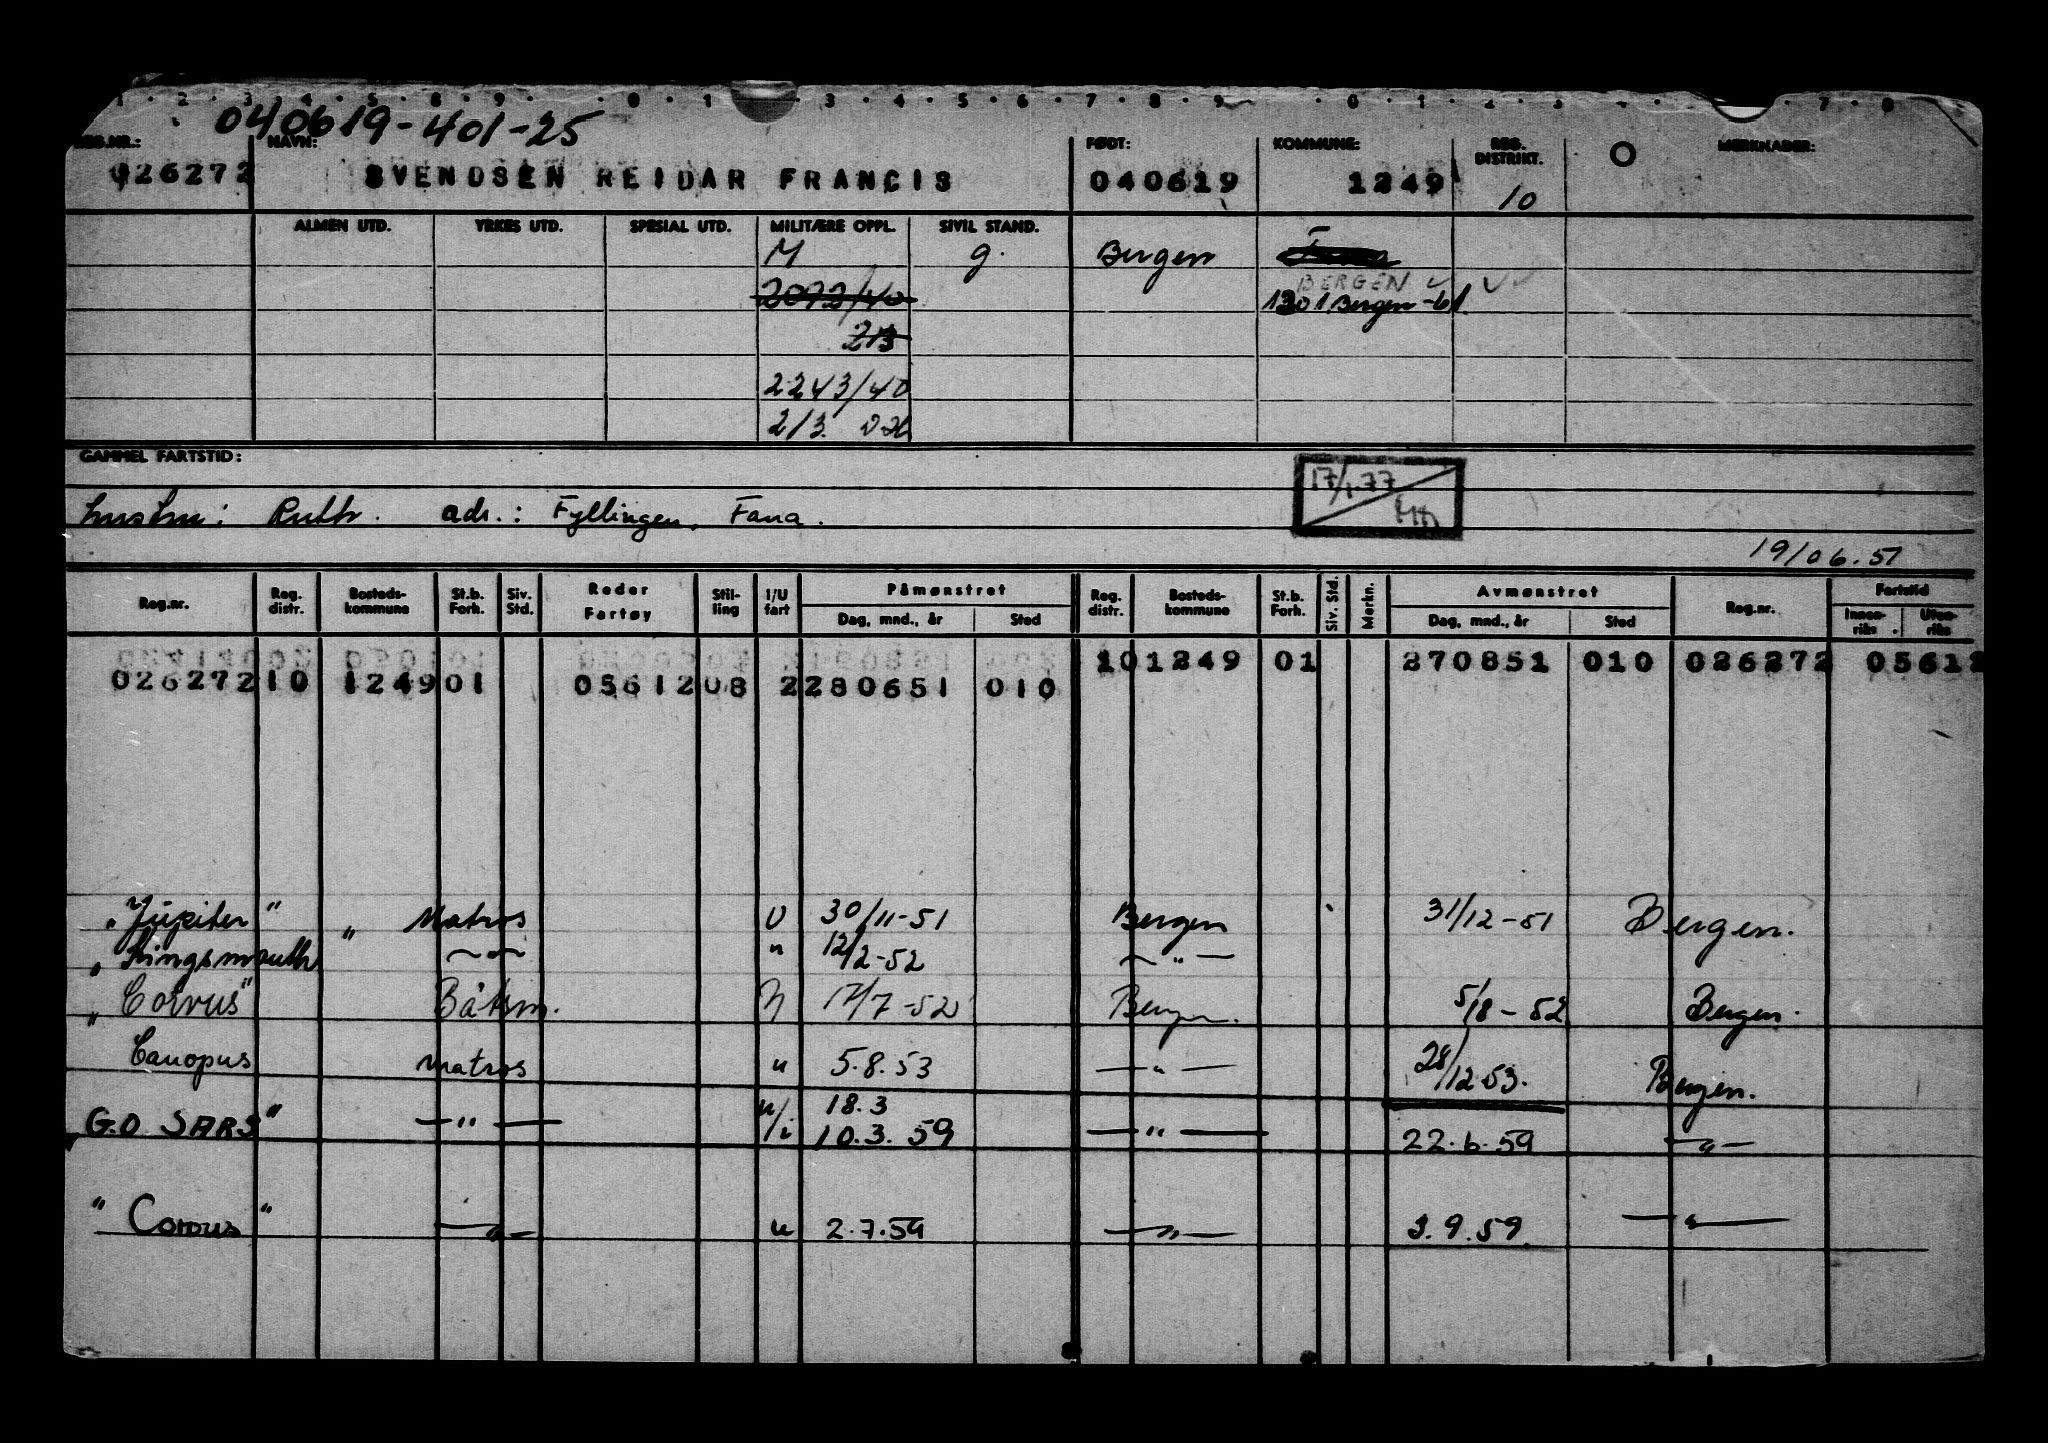 1 · 2 · 3 · 4 · 5 · 6 · 9 · 0 · 1 · 3 · 4 · 5 · 6 · 7 · 8 · 9 · 0 · 1 · 2 · 3 · 7 · 8
040619-401-25
REG.NR.: NAVN: FØDT: KOMMUNE: REG. DISTRIKT. MERKNADER:
026272 SVENDSEN REIDAR FRANCIS 040619 1249 10
ALMEN UTD. YRKES UTD. SPESIAL UTD. MILITÆRE OPPL. SIVIL STAND.
M g. Bergen Fana
BERGEN
2092/40 1301 Bergen -61
213
2243/40
213
GAMMEL FARTSTID:
17/1.77
hustru: Ruth. adr.: Fyllingen, Fana.
19/06.51
Reg.nr. Reg. distr. Bosteds-kommune St.b. Forh. Siv. Std. Reder Fartøy Stil-ling I/U fart Påmønstret Dag, mnd., år Sted Reg. distr. Bosteds-kommune St.b. Forh. Siv. Std. Merkn. Avmønstret Dag, mnd., år Sted Reg.nr. Fartstid Innen-riks Uten-riks
10 1249 01 270851 010 026272 05612
026272 10 1249 01 05612 08 2 280651 010
"Jupiter" " Matros U 30/11-51 Bergen 31/12-51 Bergen.
" Kingsmouth —"— " 12/2-52 —"—
" Corvus" Båtsm. U 17/7-52 Bergen. 5/8-52 Bergen.
Canopus matros u 5.8.53 —"— 28/12 53. Bergen.
18.3
G.O SARS" —"— u/i 10.3.59 —"— 22.6.59 —"—
" Corvus " —"— u 2.7.59 —"— 3.9.59. —"—